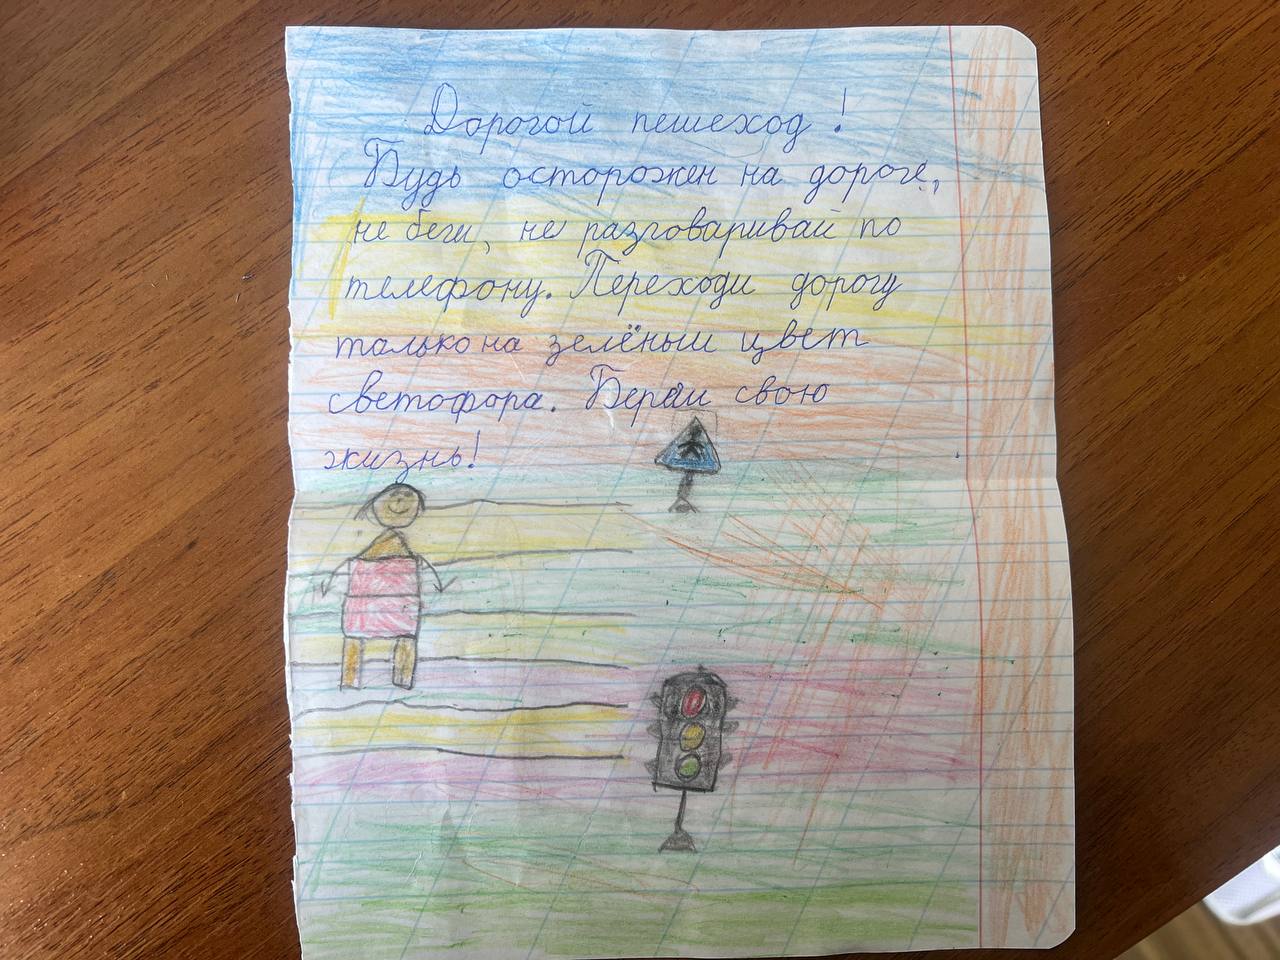 Дорогой пешеход!
Будь осторожен на дороге,
не беги, не разговаривай по
телефону. Переходи дорогу
только на зелёный цвет
светофора. Береги свою
жизнь!